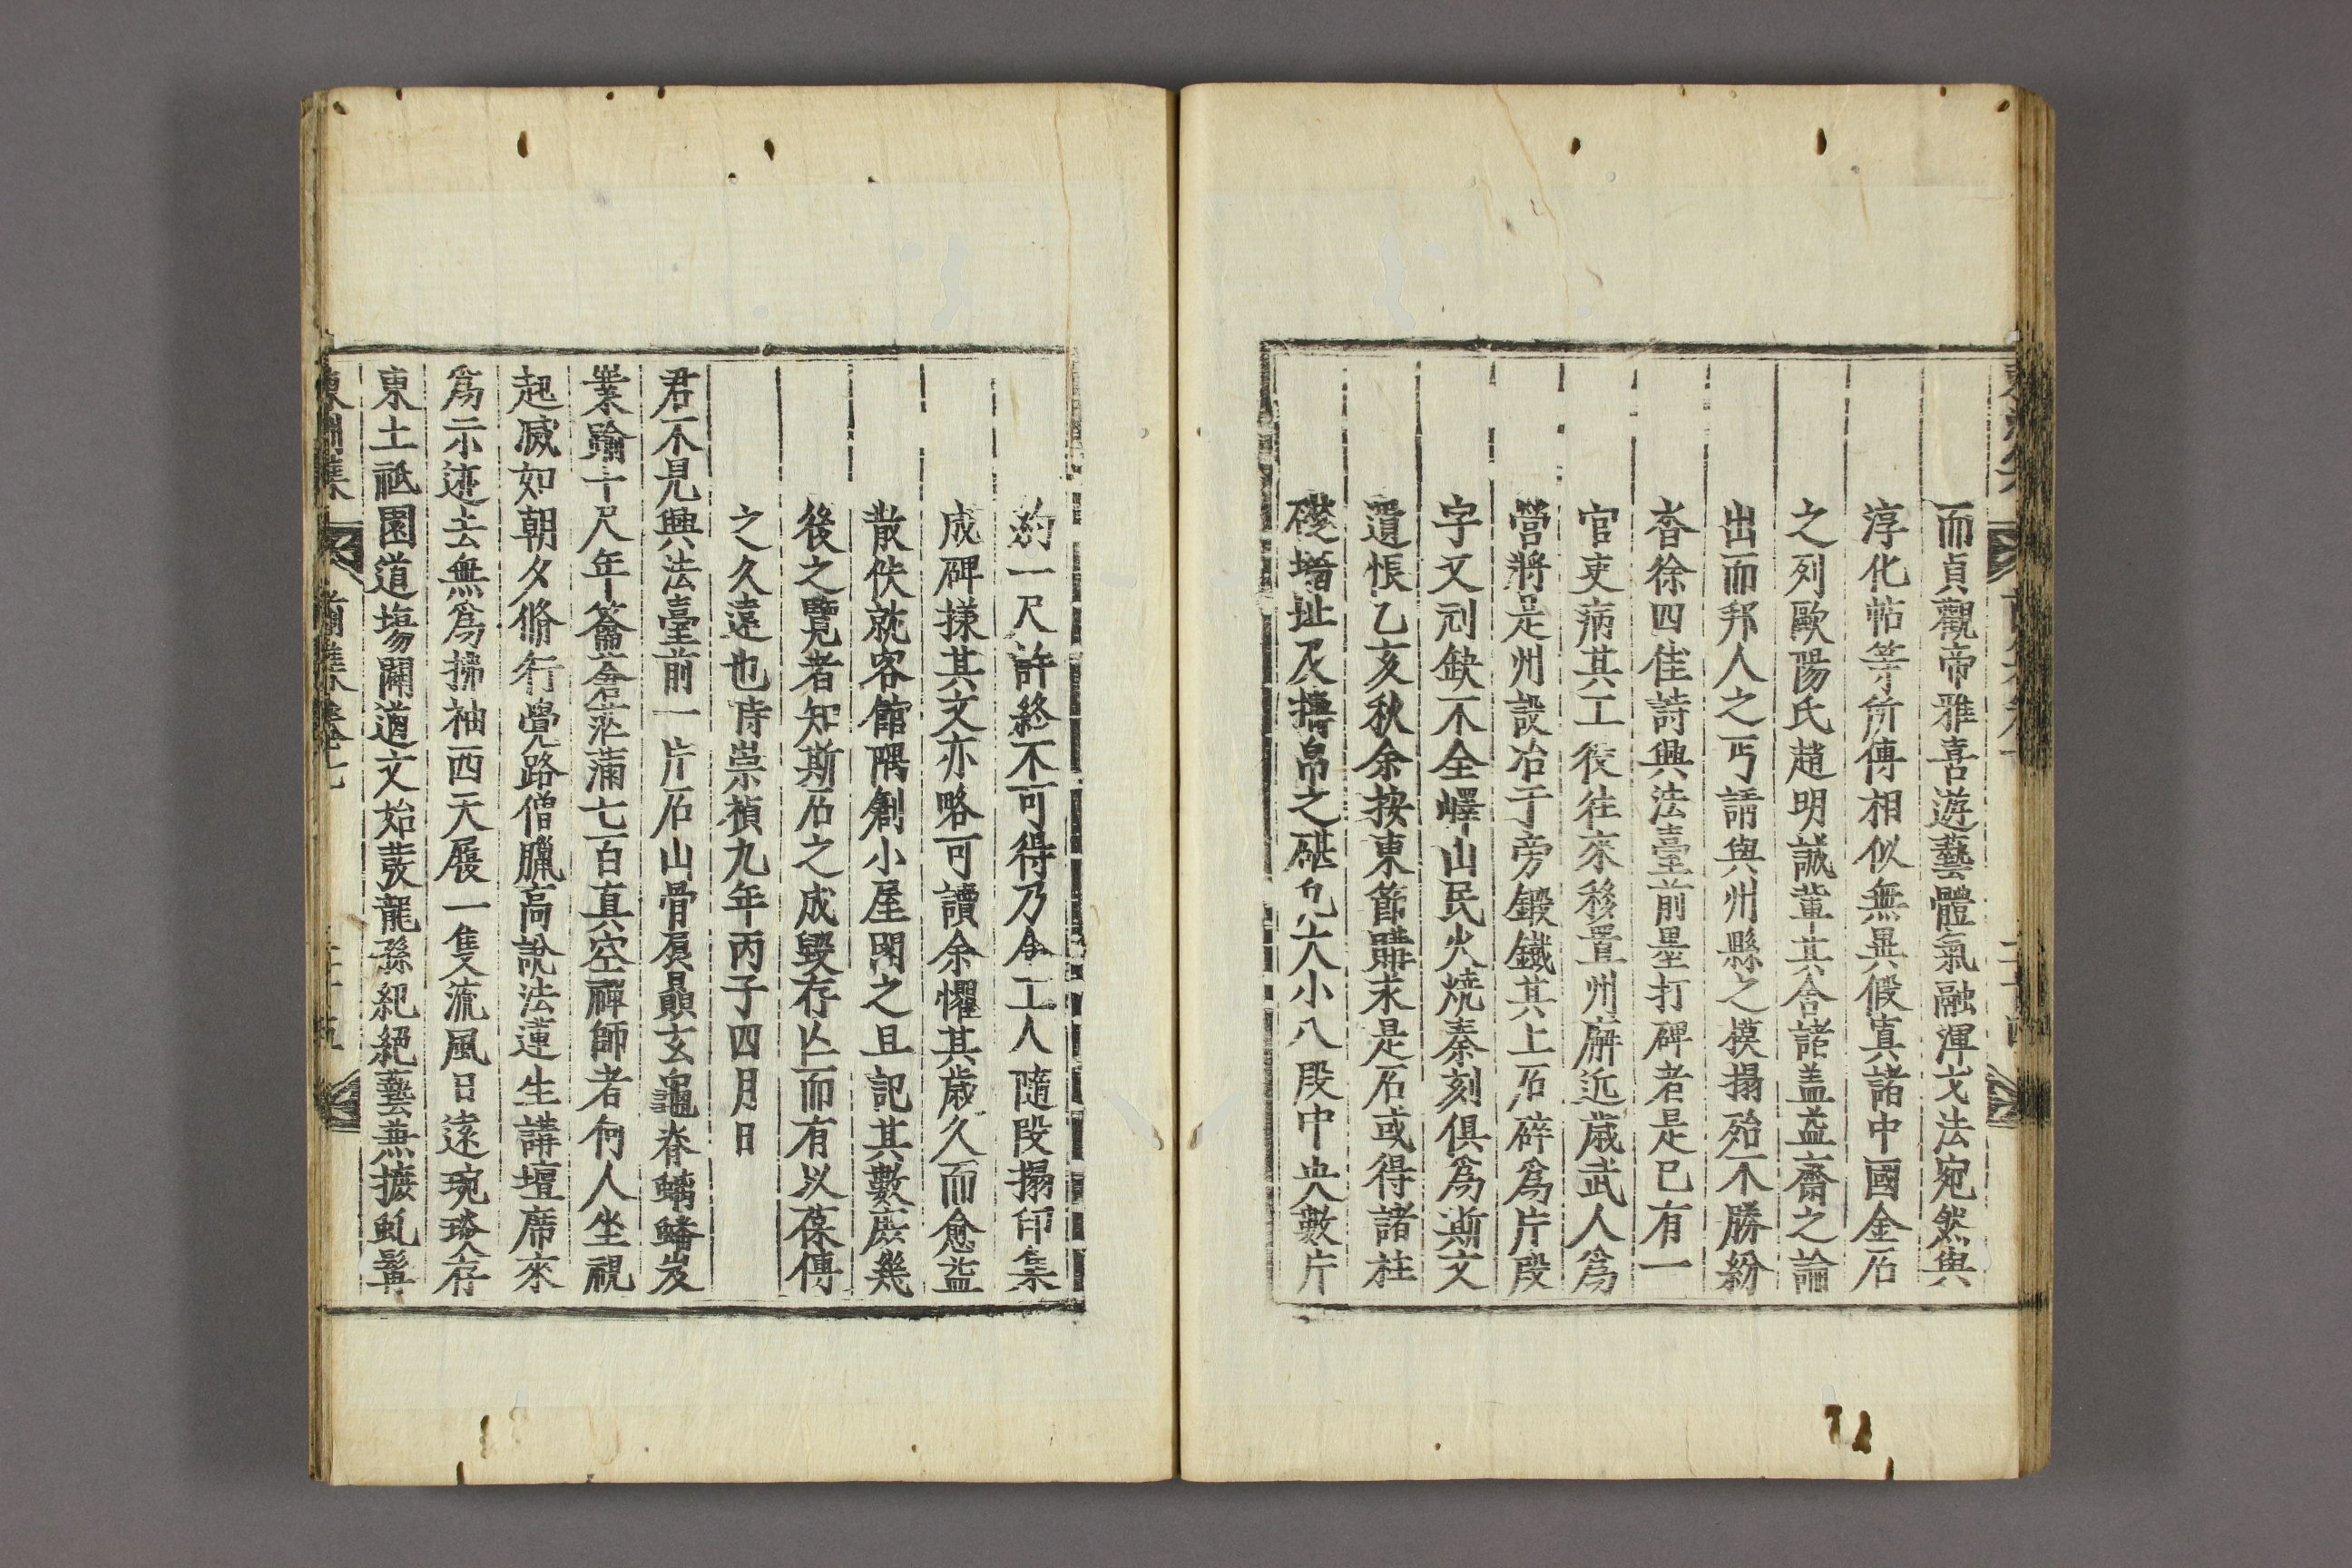 而貞觀帝雅喜遊藝體氣融渾戈法宛然與
淳化帖等所傳相似無異假寘諸中國金石
之列歐陽氏趙明誠輩其舍諸盖益齋之論
出而邦人之丐請與州縣之摸搨殆不勝紛
沓徐四佳詩興法臺前墨打碑者是已有一
官吏病其工役往來移置州廨近歲武人爲
營將是州設冶于旁鍛鐵其上石碎爲片段
字又刓缺不全嶧山民火燒秦刻俱爲斯文
遺悵乙亥秋余按東節購求是石或得諸柱
礎堦址及擣帛之碪凢大小八段中央數片
約一尺許終不可得乃令工人隨段搨印集
成碑㨾其文亦略可讀余懼其歲久而愈益
散佚就客館隅創小屋閣之且記其數庶幾
後之覽者知斯石之成毀存亾而有以葆傳
之久遠也時崇禎九年丙子四月日
君不見興法臺前一片石山骨屓贔玄龜脊螭蟠岌
業踰十尺年籥蒼茫滿七百真空禪師者何人坐視
起滅如朝夕脩行覺路僧臘高說法蓮生講壇席來
爲示迹去無爲拂袖西天展一隻流風日遠琬琰存
東土祗園道塲闢遒文始發龍孫紀絕藝兼攄虬髯
東州集 前集卷之七